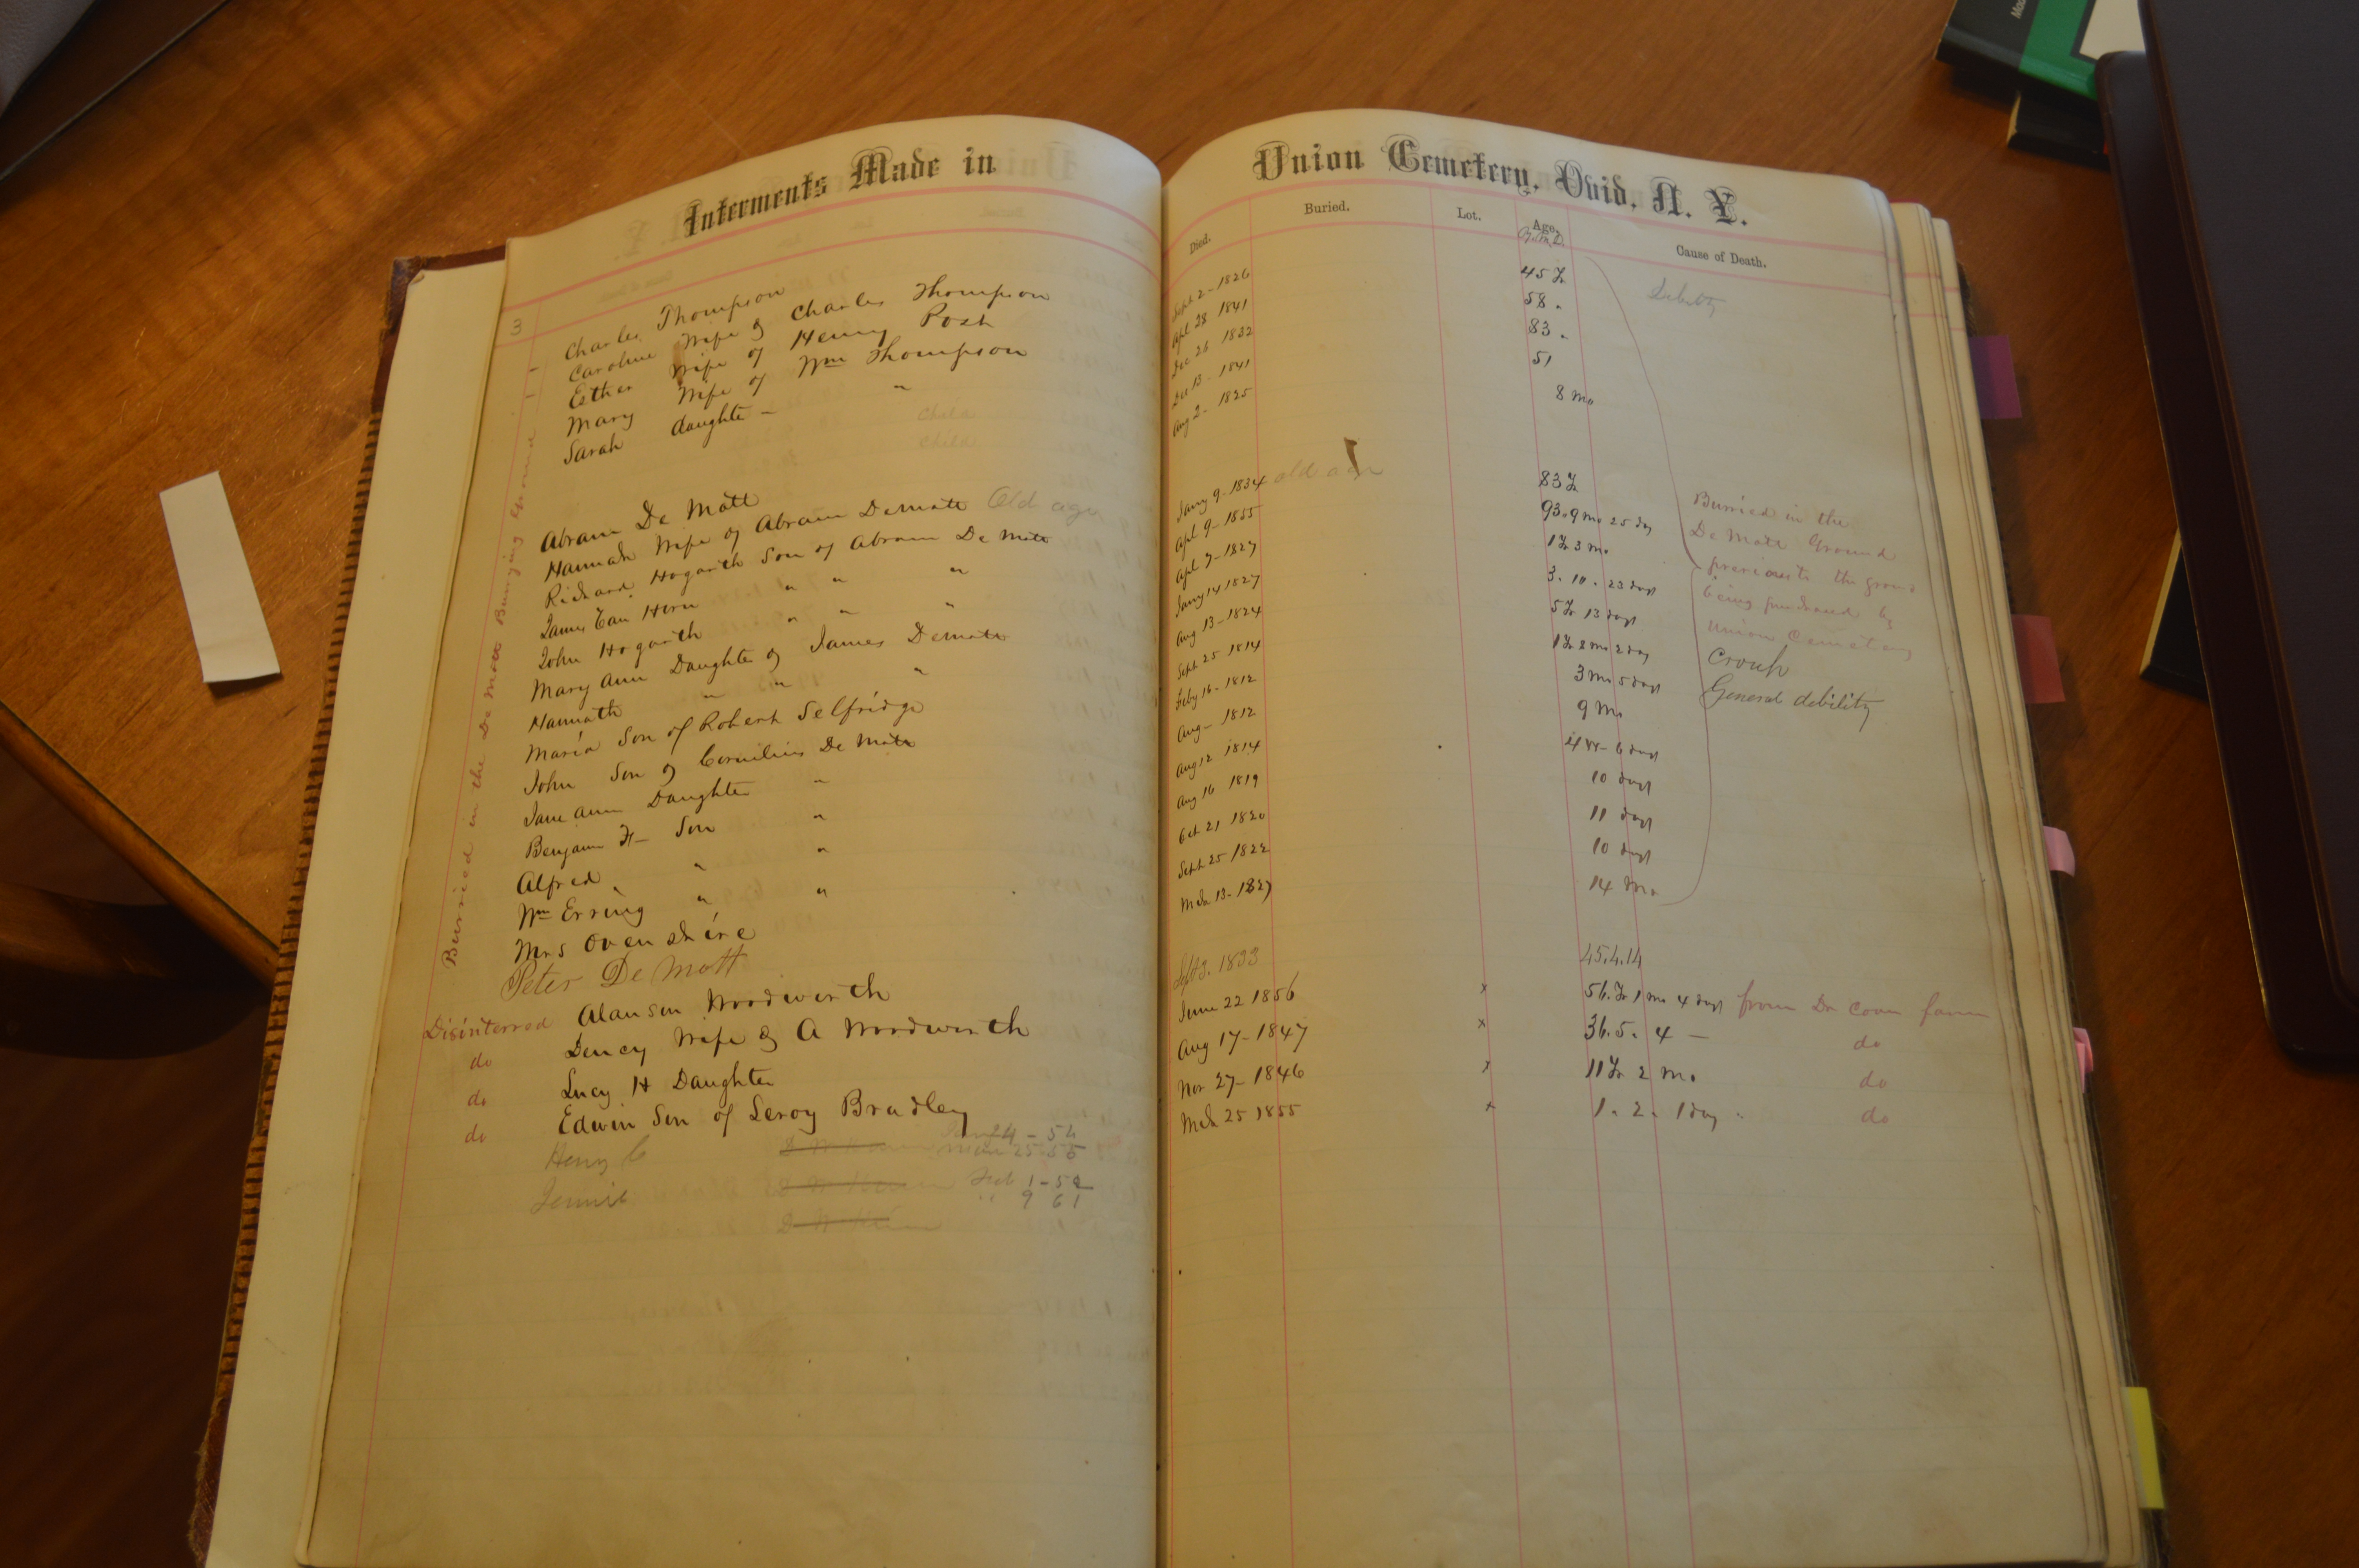 Interments Made in
3
Burried in the De Mott Burying Ground
Charles Thompson
Caroline Wife of Charles Thompson
Esther Wife of Henry Post
Mary Wife of Wm Thompson
Sarah daughter - "
Child
Child
Abram De Mott
Hannah Wife of Abram Demott Old age
Richard Hogarth Son of Abram De Mott
James Van Horn " " "
John Hogarth " " "
Mary Ann Daughter of James Demott
Hannah " " "
Maria Son of Robert Selfridge
John Son of Cornilius De Mott
Jane Ann Daughter "
Benjamin H- Son "
Alfred " "
Wm Erving " "
Mrs Ovenshire
Peter De Mott
Disinterred Alanson Woodworth
do Dency Wife of A Woodworth
do Lucy H Daughter
do Edwin Son of Leroy Bradley
24 - 54
Henry C Mar 25-55
Jennie Feb 1-52
" 9 61
Union Cemetery, Ovid, N. Y.
Died. Buried. Lot. Age. Cause of Death.
Sept 2- 1826 45 Yr Debility
Apl 28 1841 58 "
Dec 26 1832 83 "
Dec 13- 1841 51
Aug 2- 1825 8 mo
Jany 9- 1834 old age 83 Yr
Apl 9- 1855 93.9 mo 25 day
Apl 7- 1827 1 Yr 3 mo
Jany 14 1827 3. 10. 23 days
Aug 13- 1824 5 Yr 13 days
Sept 25 1814 1 Yr 8 mo 2 day
Feby 16- 1812 3 mo 5 days
Aug- 1812 9 mo
Aug 12 1814 6 days
Aug 16 1819 10 days
Oct 21 1820 11 days
Sept 25 1822 10 days
Mch 13- 1827 14 mo
Burried in the
De Mott Ground
previous to the ground
being purchased by
Union Cemetery
Croup
General debility
Sept 3. 1833 45.4.14
June 22 1856 x 56. Yr 1 mo 4 days from Dr Coan farm
Aug 17- 1847 x 36. 5. 4 - do
Nov 27- 1846 x 11 Yr 2 mo do
Mch 25 1855 x 1. 2. 1 day " do